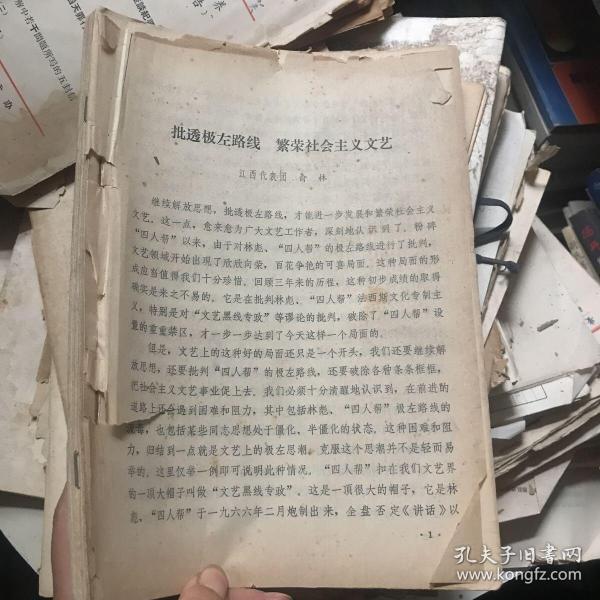 批透极左路线 繁荣社会主义文艺
江西代表团 俞林
继续解放思想，批透极左路线，才能进一步发展和繁荣社会主义
文艺。这一点，愈来愈为广大文艺工作者，深刻地认识到了。粉碎
“四人帮”以来，由于对林彪、“四人帮”的极左路线进行了批判，
文艺领域开始出现了欣欣向荣，百花争艳的可喜局面。这种局面的形
成应当值得我们十分珍惜。回顾三年来的历程，这种初步成绩的取得
确实是来之不易的。它是在批判林彪、“四人帮”法西斯文化专制主
义，特别是对“文艺黑线专政”等谬论的批判，破除了“四人帮”设
置的重重禁区，才一步一步达到了今天这样一个局面的。
但是，文艺上的这种好的局面还只是一个开头，我们还要继续解
放思想，还要批判“四人帮”的极左路线，还要破除各种条条框框，
把社会主义文艺事业促上去。我们必须十分清醒地认识到，在前进的
道路上还会遇到困难和阻力，其中包括林彪、“四人帮”极左路线的
流毒，也包括某些同志思想处于僵化、半僵化的状态。这种困难和阻
力，归结到一点就是文艺上的极左思潮。克服这个思潮并不是轻而易
举的。这里仅举一例即可说明此种情况。“四人帮”扣在我们文艺界
的一顶大帽子叫做“文艺黑线专政”。这是一顶很大的帽子，它是林
彪、“四人帮”于一九六六年二月炮制出来，全盘否定《讲话》以
·1·
孔夫子旧书网
www.kongfz.com